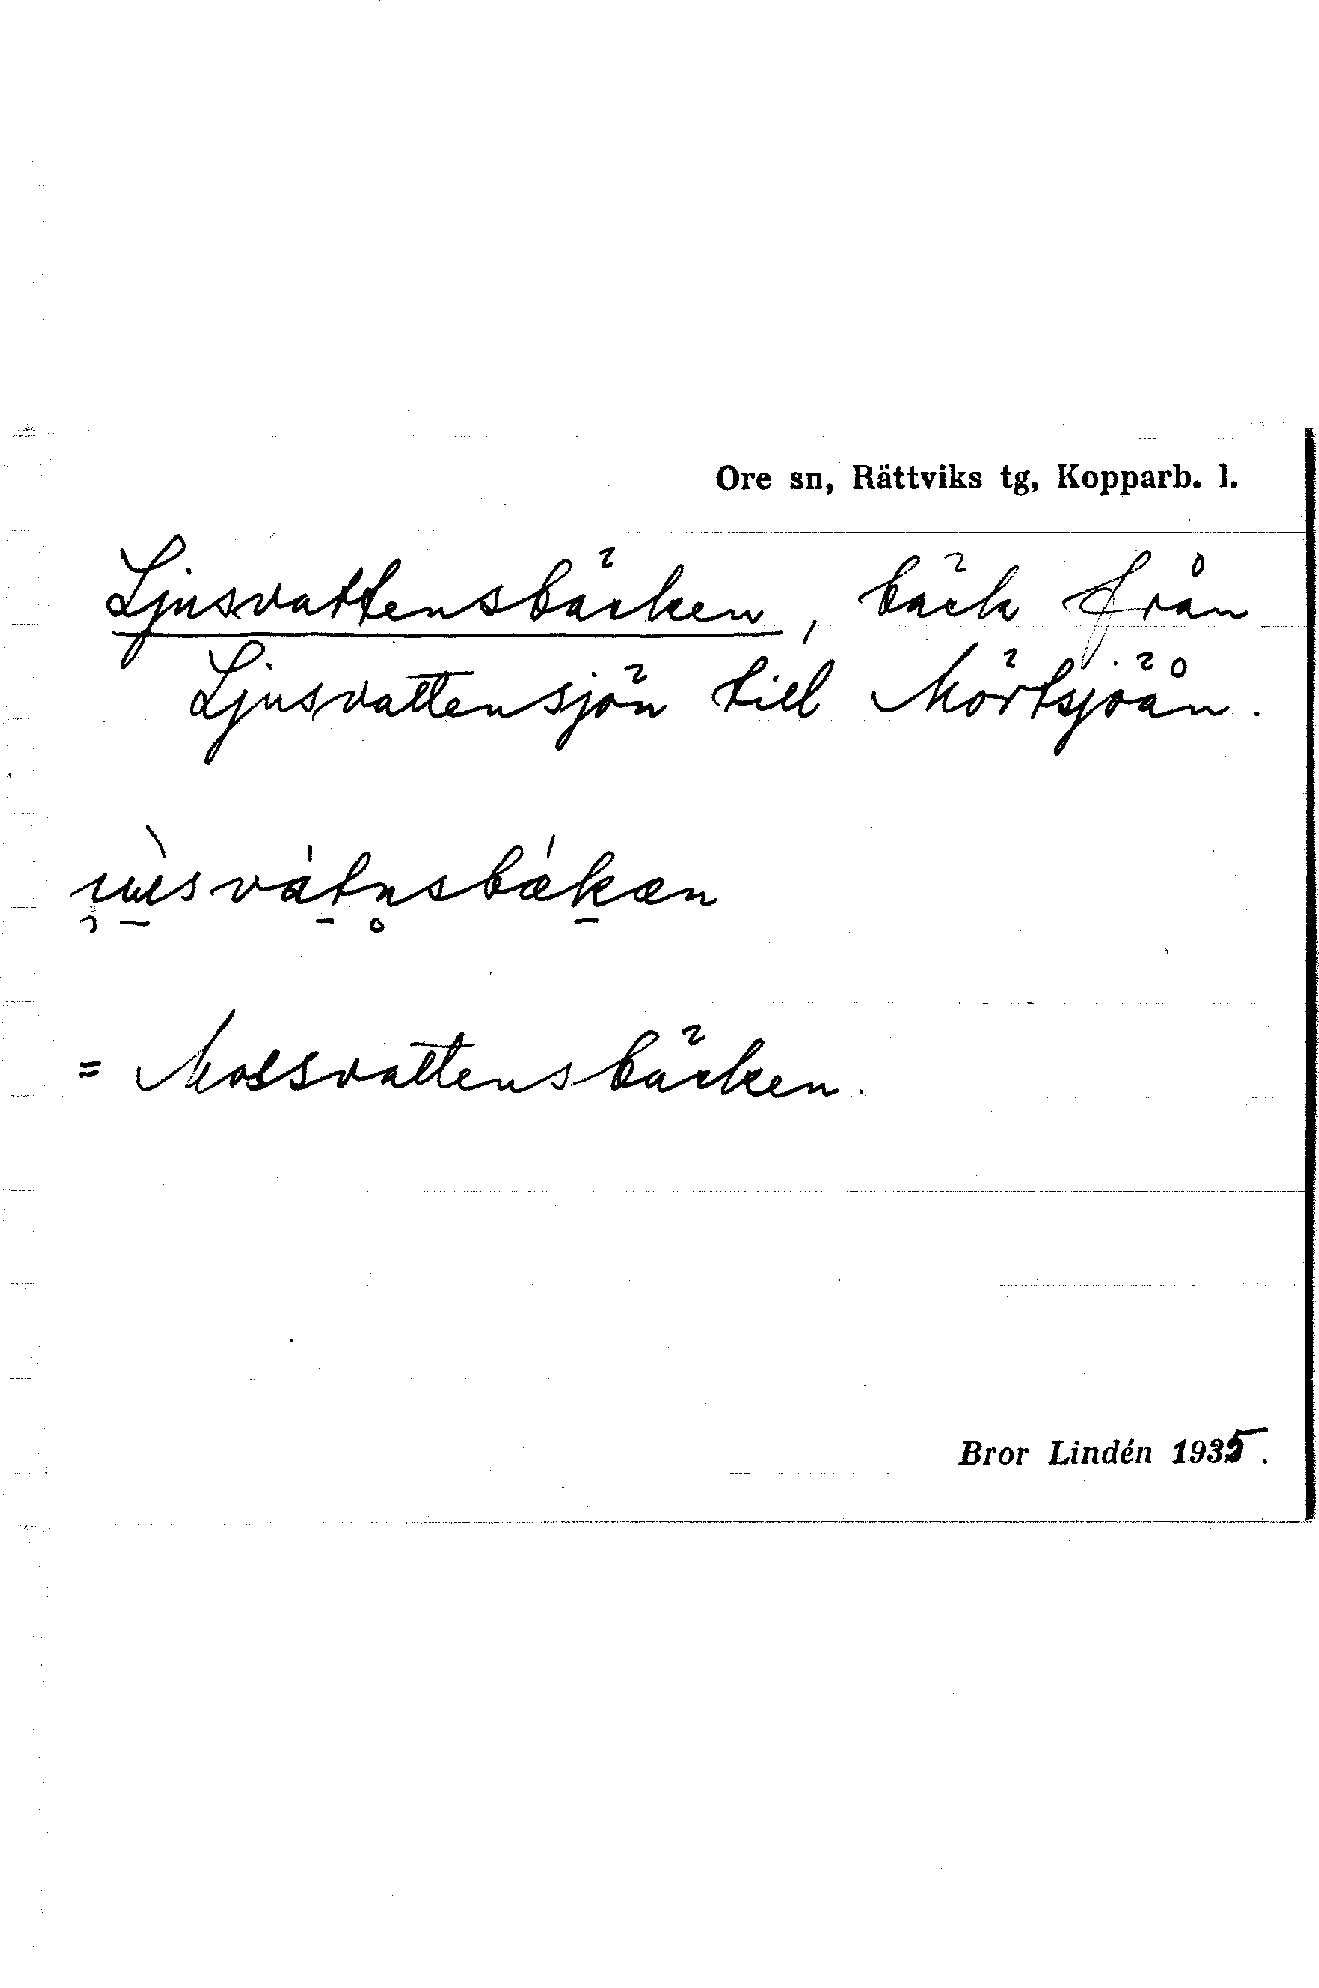 Ore sn, Rättviks tg, Kopparb. l.
Ljusvattensbäcken, bäck från
Ljusvattensjön till Mörtsjöån.
= Mossvattensbäcken.
Bror Lindén 1935.